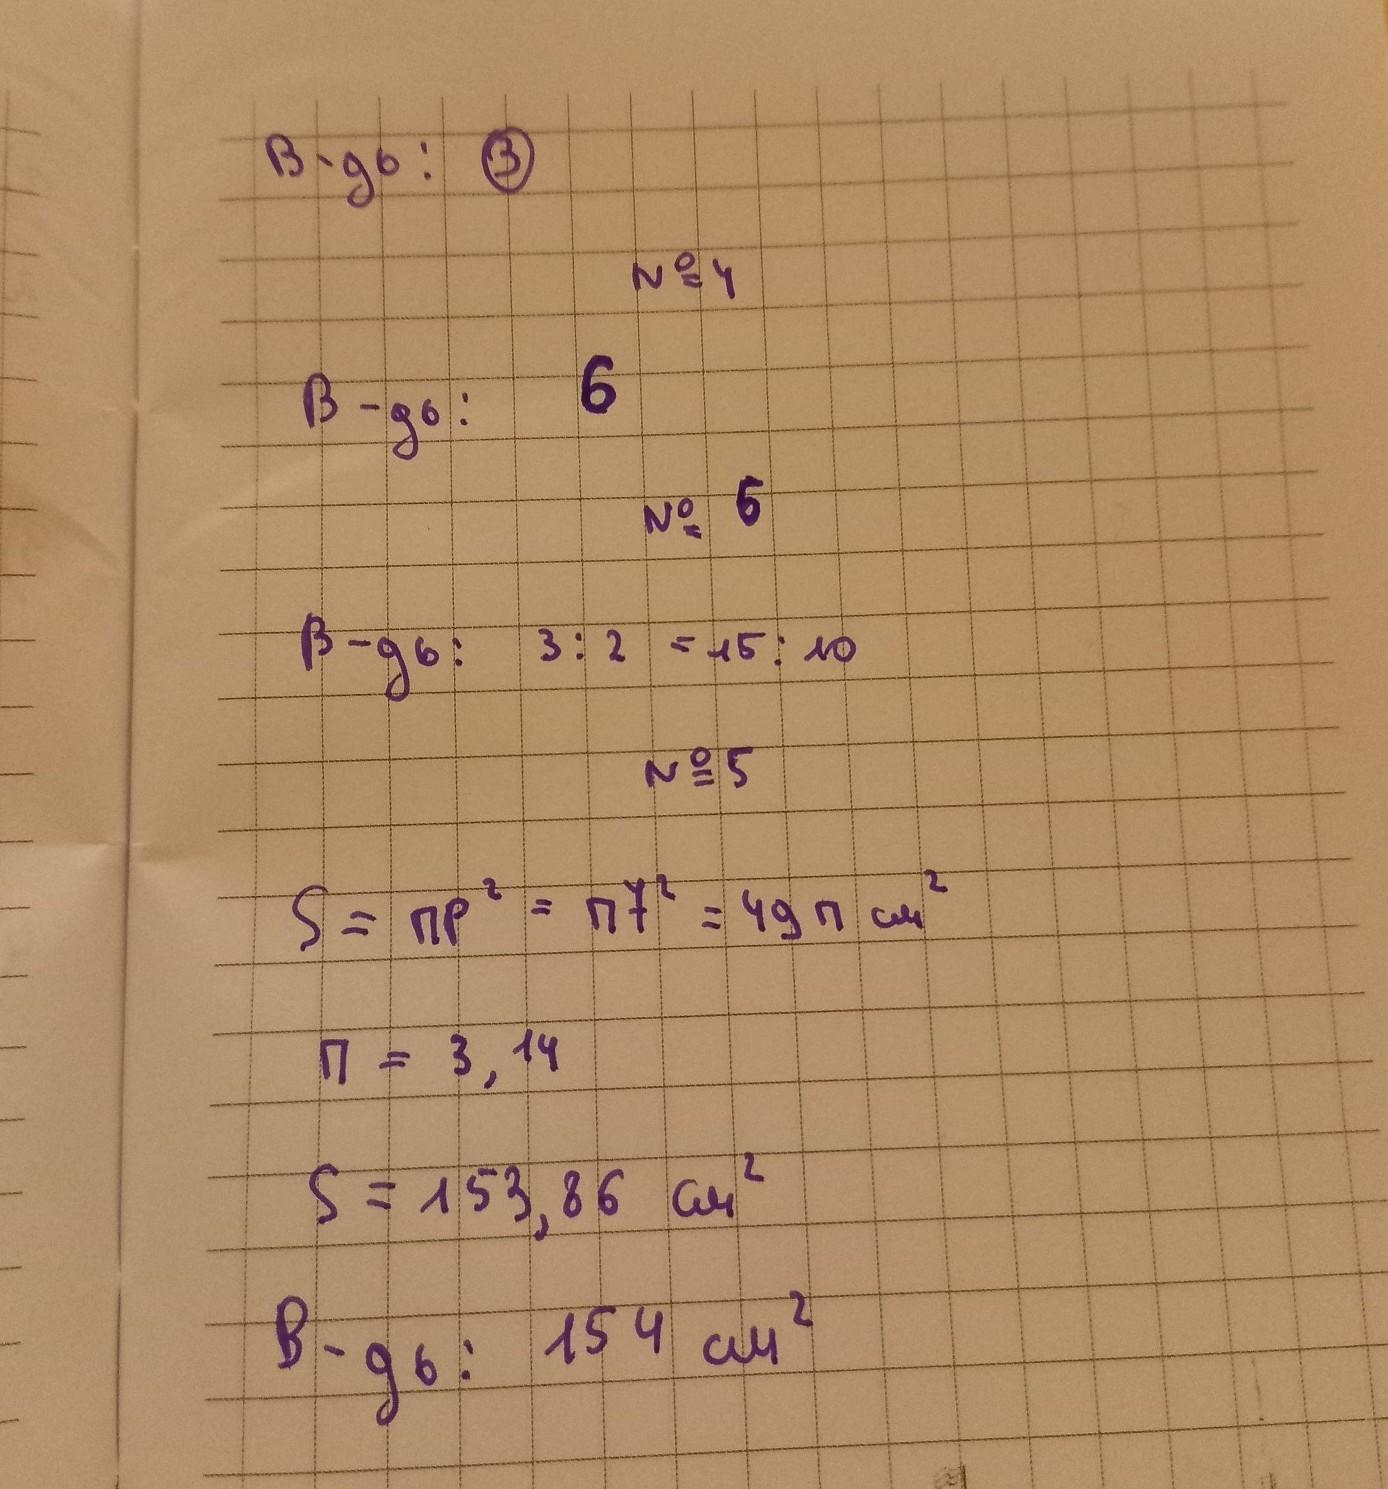 В-дь: В
№4
В-дь: 6
№ 6
В-дь: 3:2 = 15:10
№5
S = ПР² = П7² = 49П см²
П = 3,14
S = 153,86 см²
В-дь: 154 см²